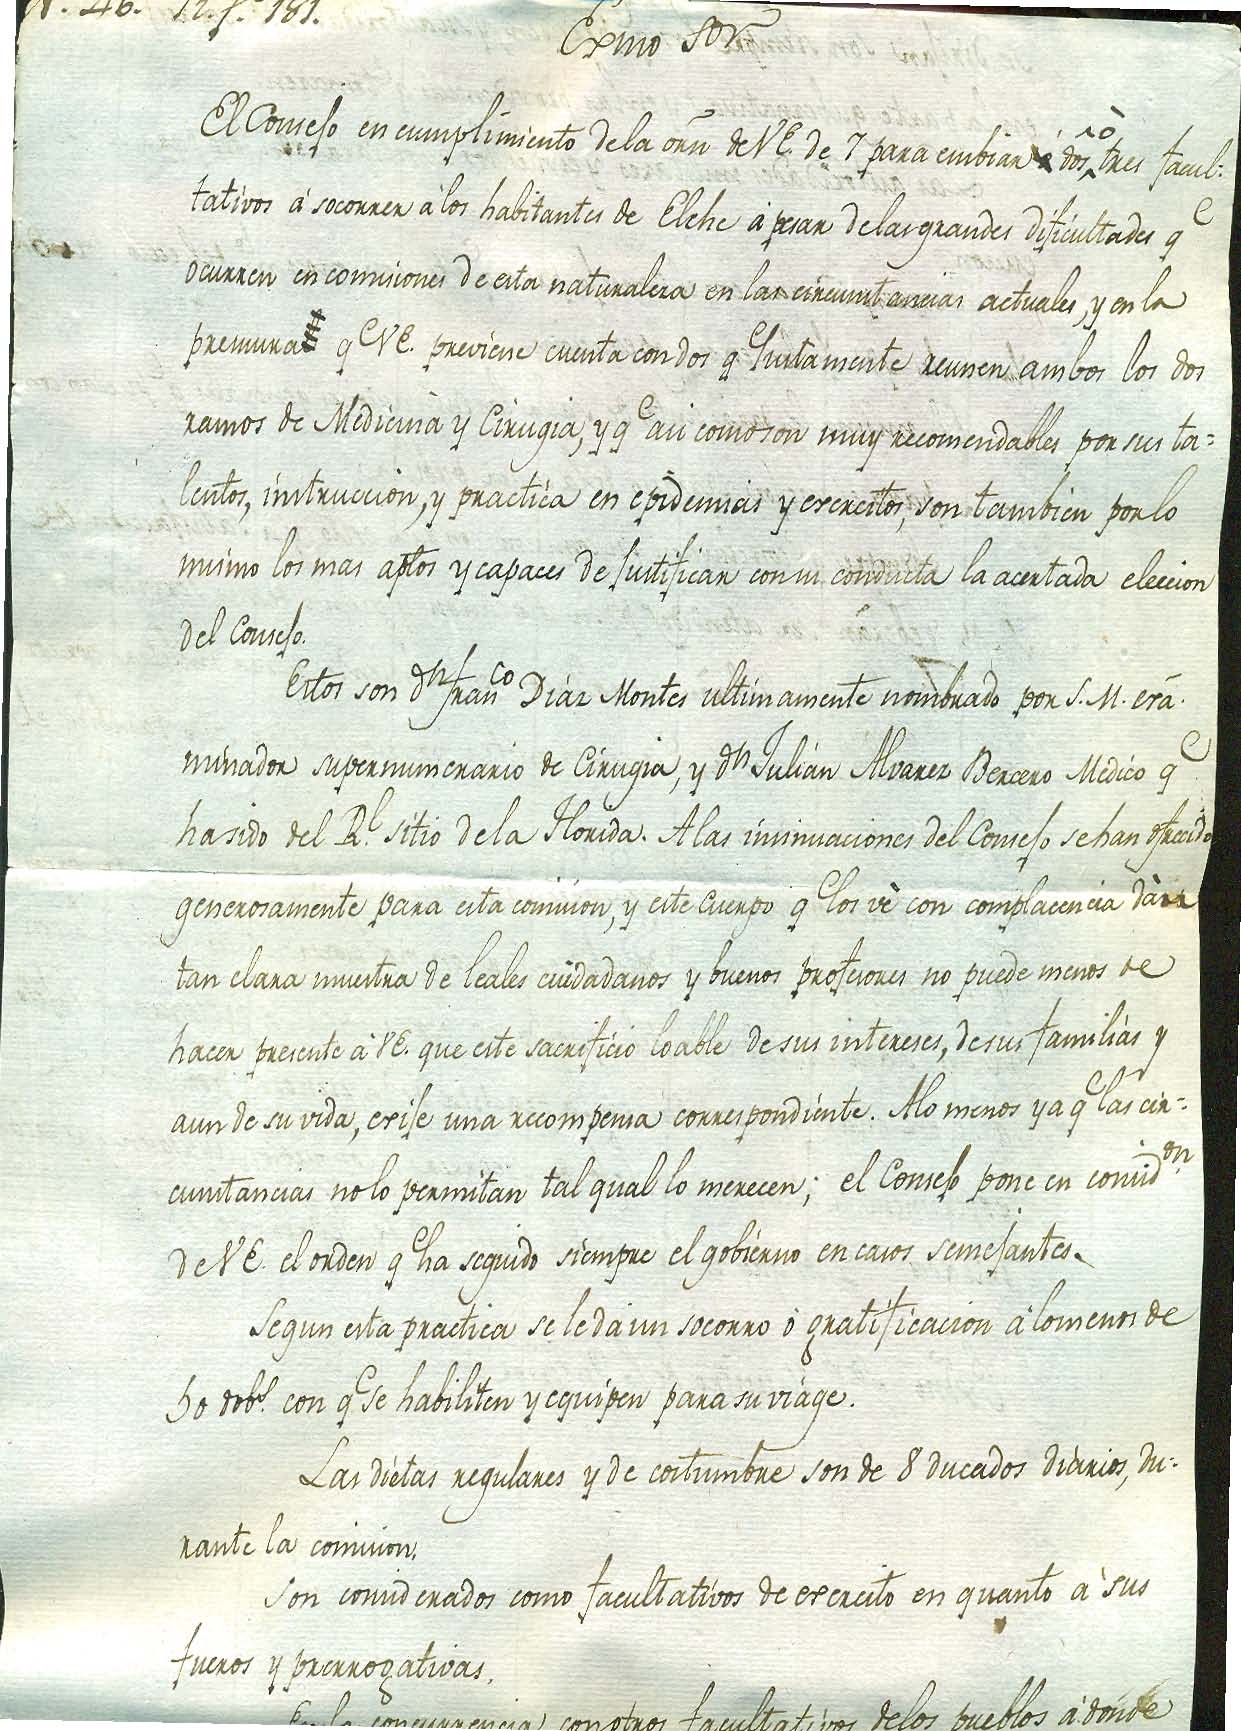 N. 46. 12. f.º 181.
Exmo Sor
El Consejo en cumplimiento de la orñ de VE. de 7 para embiar dos, ò tres facul-
tativos á socorrer á los habitantes de Elche á pesar de las grandes dificultades qe
ocurren en comisiones de esta naturaleza en las circunstancias actuales, y en la
premura qe VE. previene cuenta con dos qe justamente reunen ambos los dos
ramos de Medicina y Cirugia, y qe asi como son muy recomendables por sus ta-
lentos, instruccion, y practica en epidemias y exercitos, son tambien por lo
mismo los mas aptos y capaces de justificar con su conducta la acertada eleccion
del Consejo.
Estos son dn Franco Diaz Montes ultimamente nombrado por S. M. exã-
minador supernumerario de Cirugia, y dn Julian Alvarez Bercero Medico qe
ha sido del Rl. sitio de la Florida. A las insinuaciones del Consejo se han ofrecido
generosamente para esta comision, y este cuerpo qe los vè con complacencia dàr
tan clara muestra de leales ciudadanos y buenos profesores no puede menos de
hacer presente à VE. que este sacrificio loable de sus intereses, de sus familias y
aun de su vida, exije una recompensa correspondiente. A lo menos ya qe las cir-
cunstancias no lo permitan tal qual lo merecen; el Consejo pone en considon
de VE. el orden qe ha seguido siempre el gobierno en casos semejantes.
Segun esta practica se le da un socorro ò gratificacion á lo menos de
50 dobs. con qe se habiliten y equipen para su viage.
Las dietas regulares y de costumbre son de 8 ducados diarios, du-
rante la comision.
Son considerados como facultativos de exercito en quanto à sus
fueros y prerrogativas.
En la concurrencia con otros facultativos de los pueblos á donde